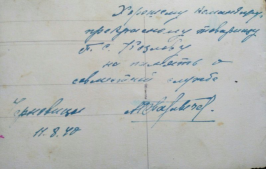 Хорошему командиру,
прекрасному товарищу
Козлову
на память о
совместной службе.
Черновицы
11.8.40